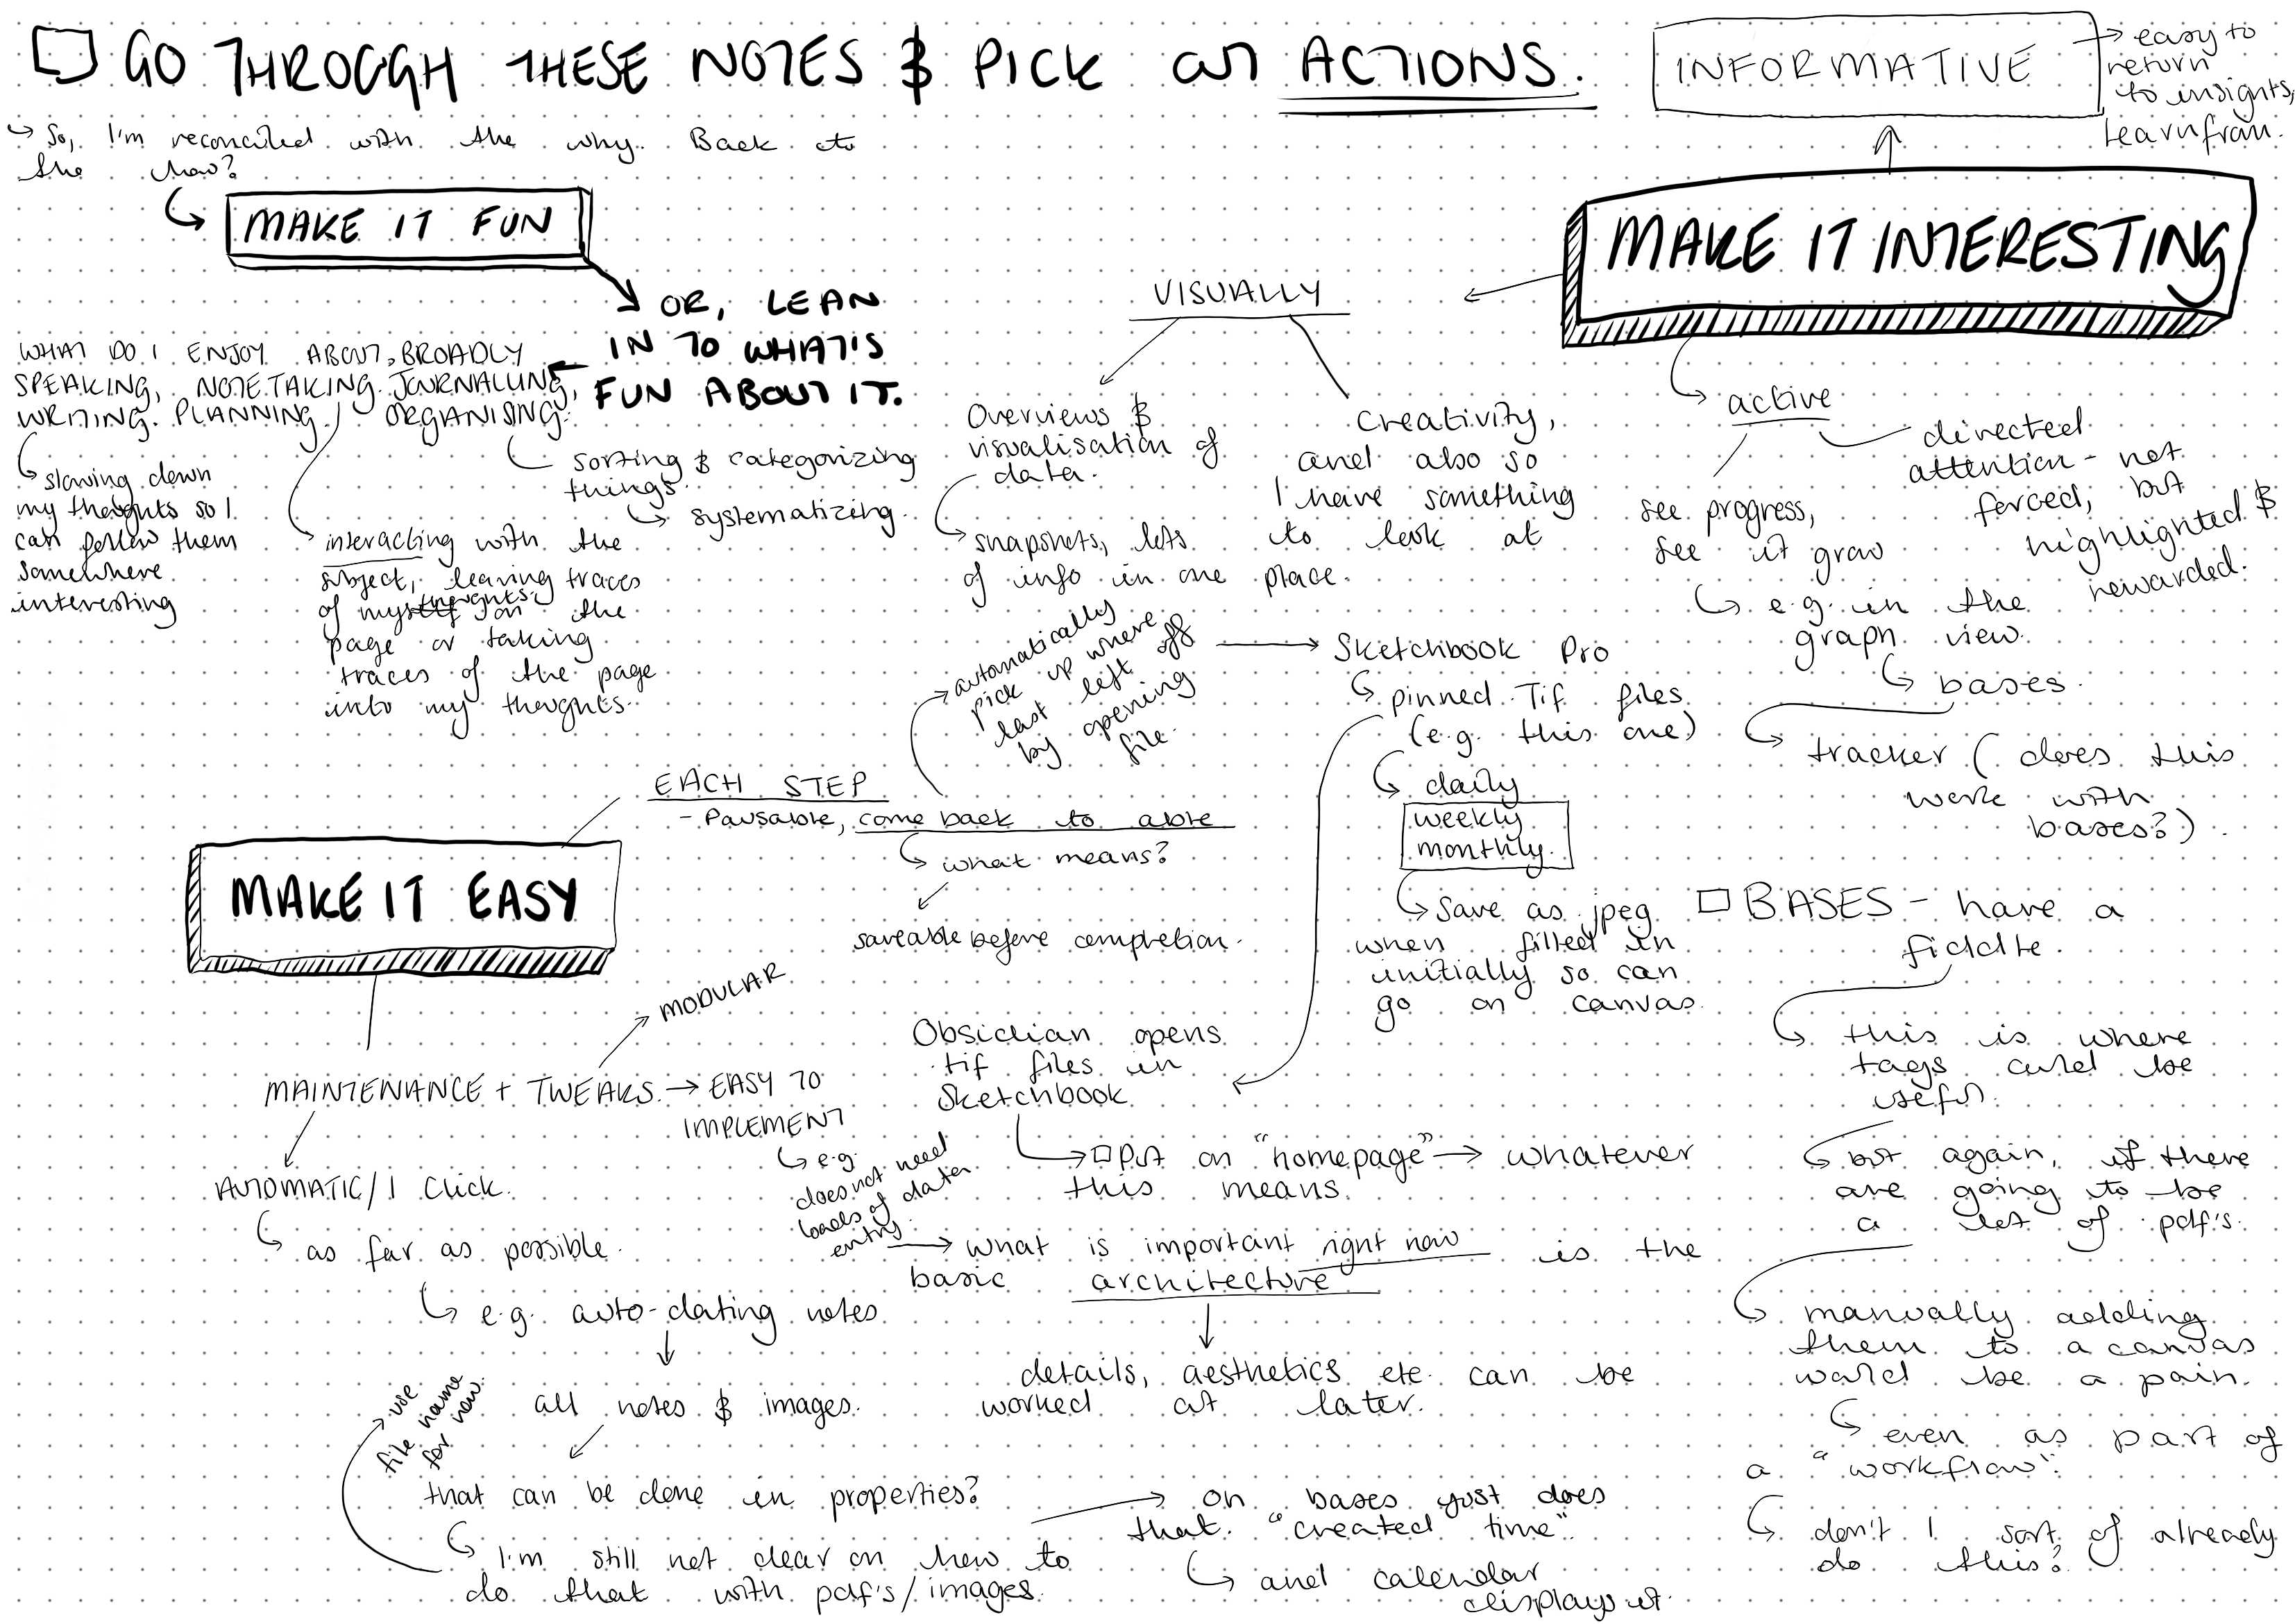 GO THROUGH THESE NOTES & PICK OUT ACTIONS.
↳ So, I'm reconciled with the why. Back to
the how?
MAKE IT FUN
OR, LEAN
IN TO WHAT'S
FUN ABOUT IT.
WHAT DO I ENJOY ABOUT, BROADLY
SPEAKING, NOTE TAKING. JOURNALLING,
WRITING. PLANNING / ORGANISING.
slowing down
my thoughts so I
can follow them
somewhere
interesting
interacting with the
subject, leaving traces
of my thoughts on the
page or taking
traces of the page
into my thoughts.
sorting & categorizing
things.
systematizing.
INFORMATIVE
easy to
return
to insights,
learn from.
MAKE IT INTERESTING
VISUALLY
Overviews &
visualisation of
data.
snapshots, lots
of info in one place.
Creativity,
and also so
I have something
to look at
active
directed
attention - not
forced, but
highlighted &
rewarded.
see progress,
see it grow
e.g. in the
graph view.
bases.
tracker (does this
work with
bases?)
BASES - have a
fiddle.
this is where
tags could be
useful.
but again, if there
are going to be
a lot of pdf's.
manually adding
them to a canvas
would be a pain.
even as part of
a "workflow".
don't I sort of already
do this?
MAKE IT EASY
EACH STEP
- Pausable, come back to able
what means?
saveable before completion.
automatically
pick up where
last left off
by opening
file.
Sketchbook Pro
pinned Tif files
(e.g. this one)
daily
weekly
monthly.
Save as jpeg
when filled in
initially so can
go on canvas.
Obsidian opens
tif files in
Sketchbook
Put on "homepage" → whatever
this means.
MAINTENANCE + TWEAKS → EASY TO
IMPLEMENT
MODULAR
e.g.
does not need
loads of data
entry.
what is important right now is the
basic architecture
details, aesthetics etc. can be
worked at later.
AUTOMATIC/1 Click.
as far as possible.
e.g. auto-dating notes
all notes & images.
that can be done in properties?
I'm still not clear on how to
do that with pdf's/images.
use
file name
for now.
on bases just does
that. "created time".
and calendar
displays it.